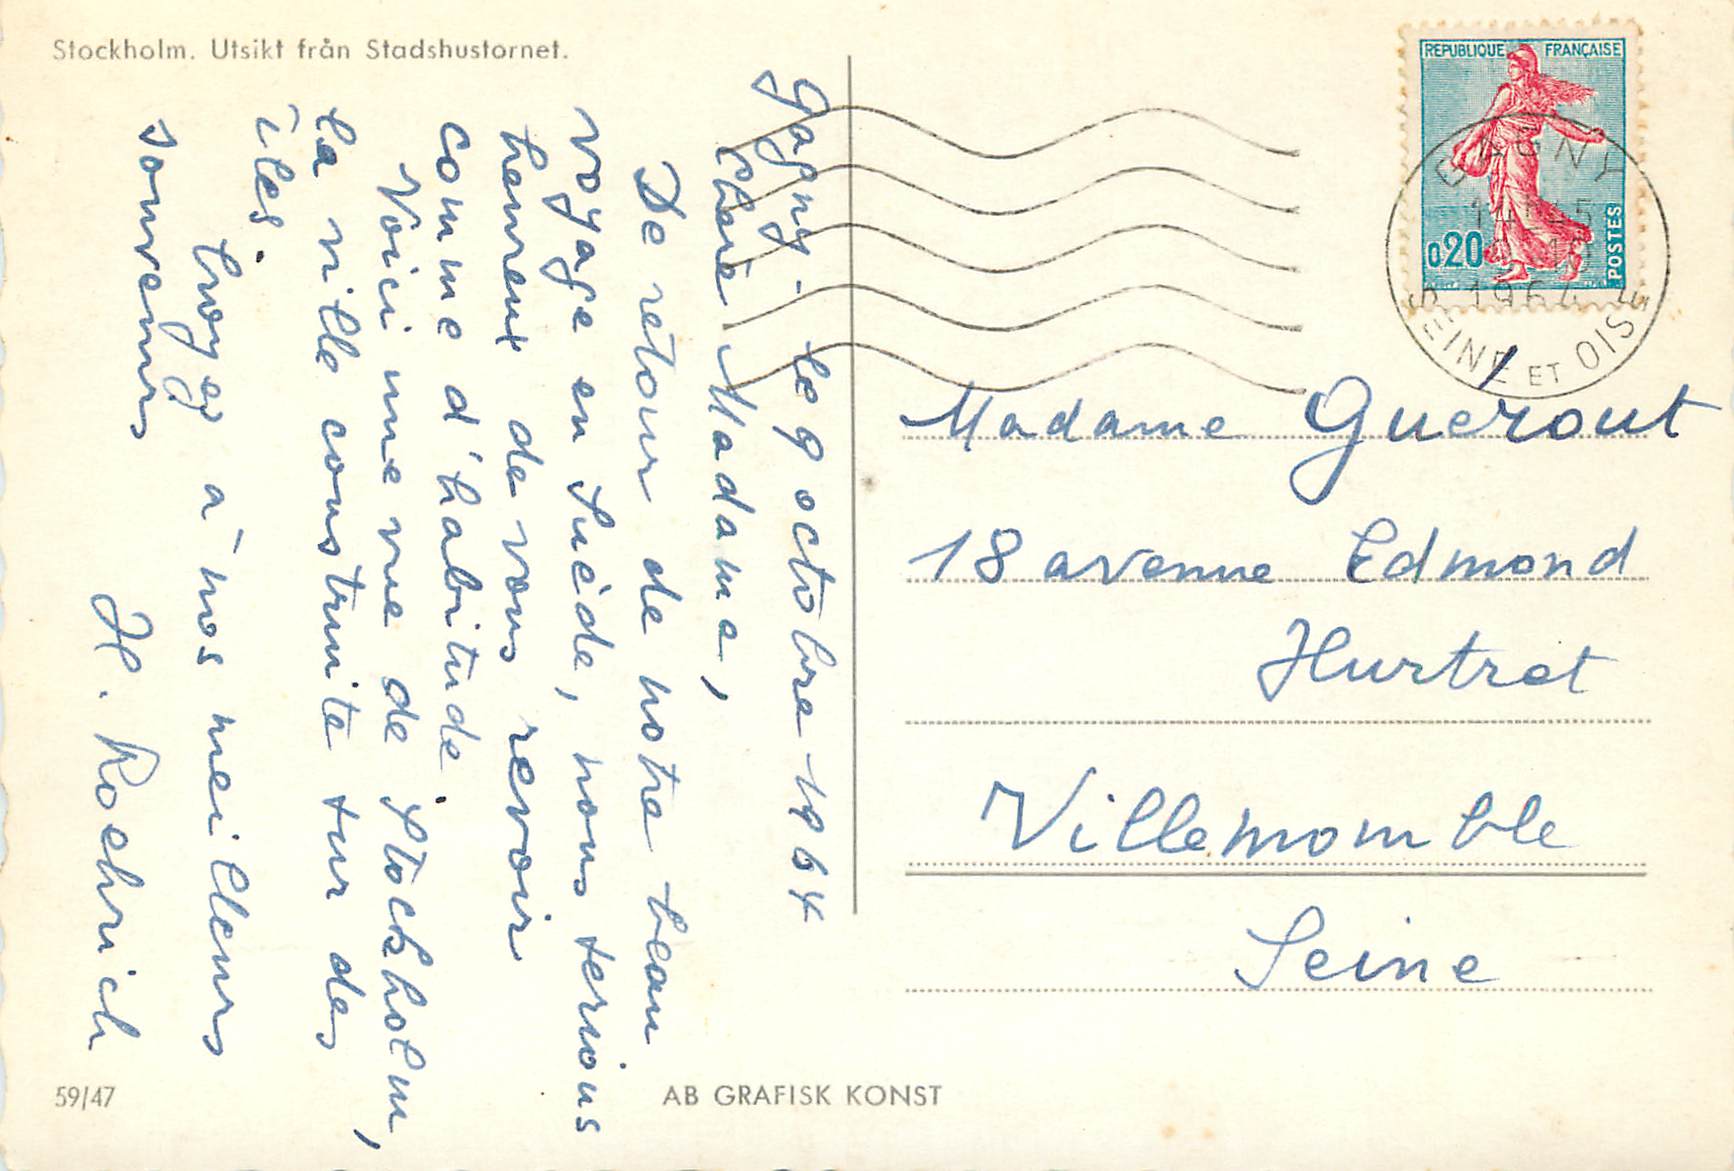 Stockholm. Utsikt från Stadshustornet.
Gagny - le 9 octobre 1964
Chère Madame,
De retour de notre beau
voyage en Suède, nous serions
heureux de vous revoir
comme d'habitude.
Voici une vue de Stockholm,
la ville construite sur des
îles.
Croyez à nos meilleurs
souvenirs
H. Roehrich
59/47
AB GRAFISK KONST
REPUBLIQUE FRANÇAISE
0,20
POSTES
GAGNY
1964
SEINE ET OISE
Madame Guérout
18 avenue Edmond
Hurtret
Villemomble
Seine